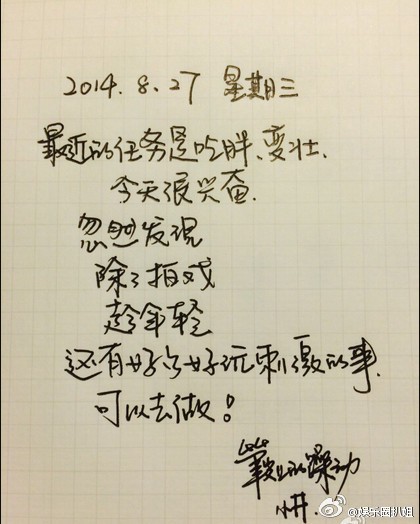 2014.8.27 星期三
最近的任务是吃胖、变壮.
今天很兴奋.
忽然发现
除了拍戏
趁年轻
还有好多好玩刺激的事.
可以去做!
的躁动
@娱乐圈扒姐